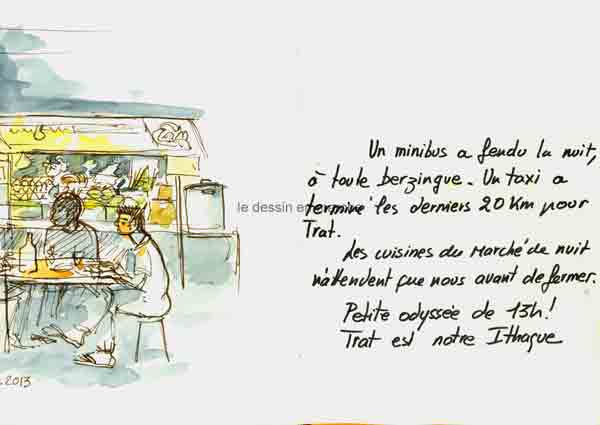 Un minibus a fendu la nuit,
à toute berzingue. Un taxi a
terminé les derniers 20 Km pour
Trat.
Les cuisines du Marché de nuit
n'attendent que nous avant de fermer.
Petite odyssée de 13h!
Trat est notre Ithaque
le dessin en
2013